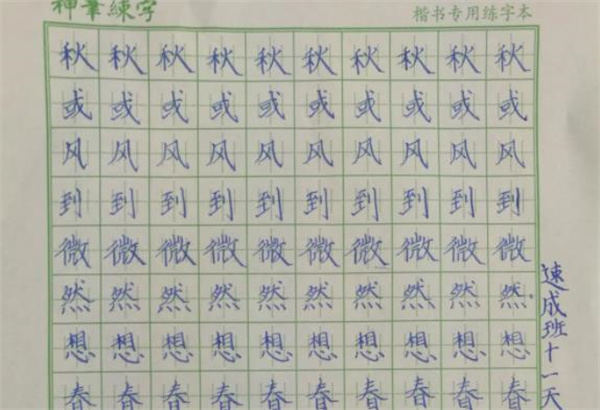 神筆練字
楷书专用练字本
秋秋秋秋秋秋秋秋秋秋
或或或或或或或或或或
风风风风风风风风风风
到到到到到到到到到到
微微微微微微微微微微
然然然然然然然然然然
想想想想想想想想想想
春春春春春春春春春春
速成班十一天